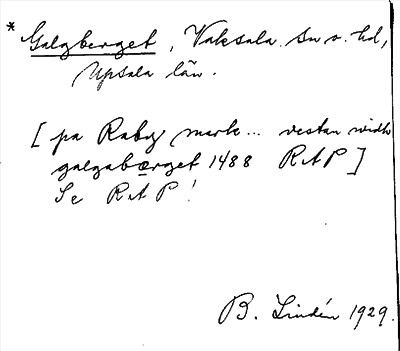 * Galgberget, Vaksala sn o. hd,
Upsala län.
[pa Raby mark... vestan widh
galgabærget 1488 RAP]
Se RAP!
B. Lindén 1929.